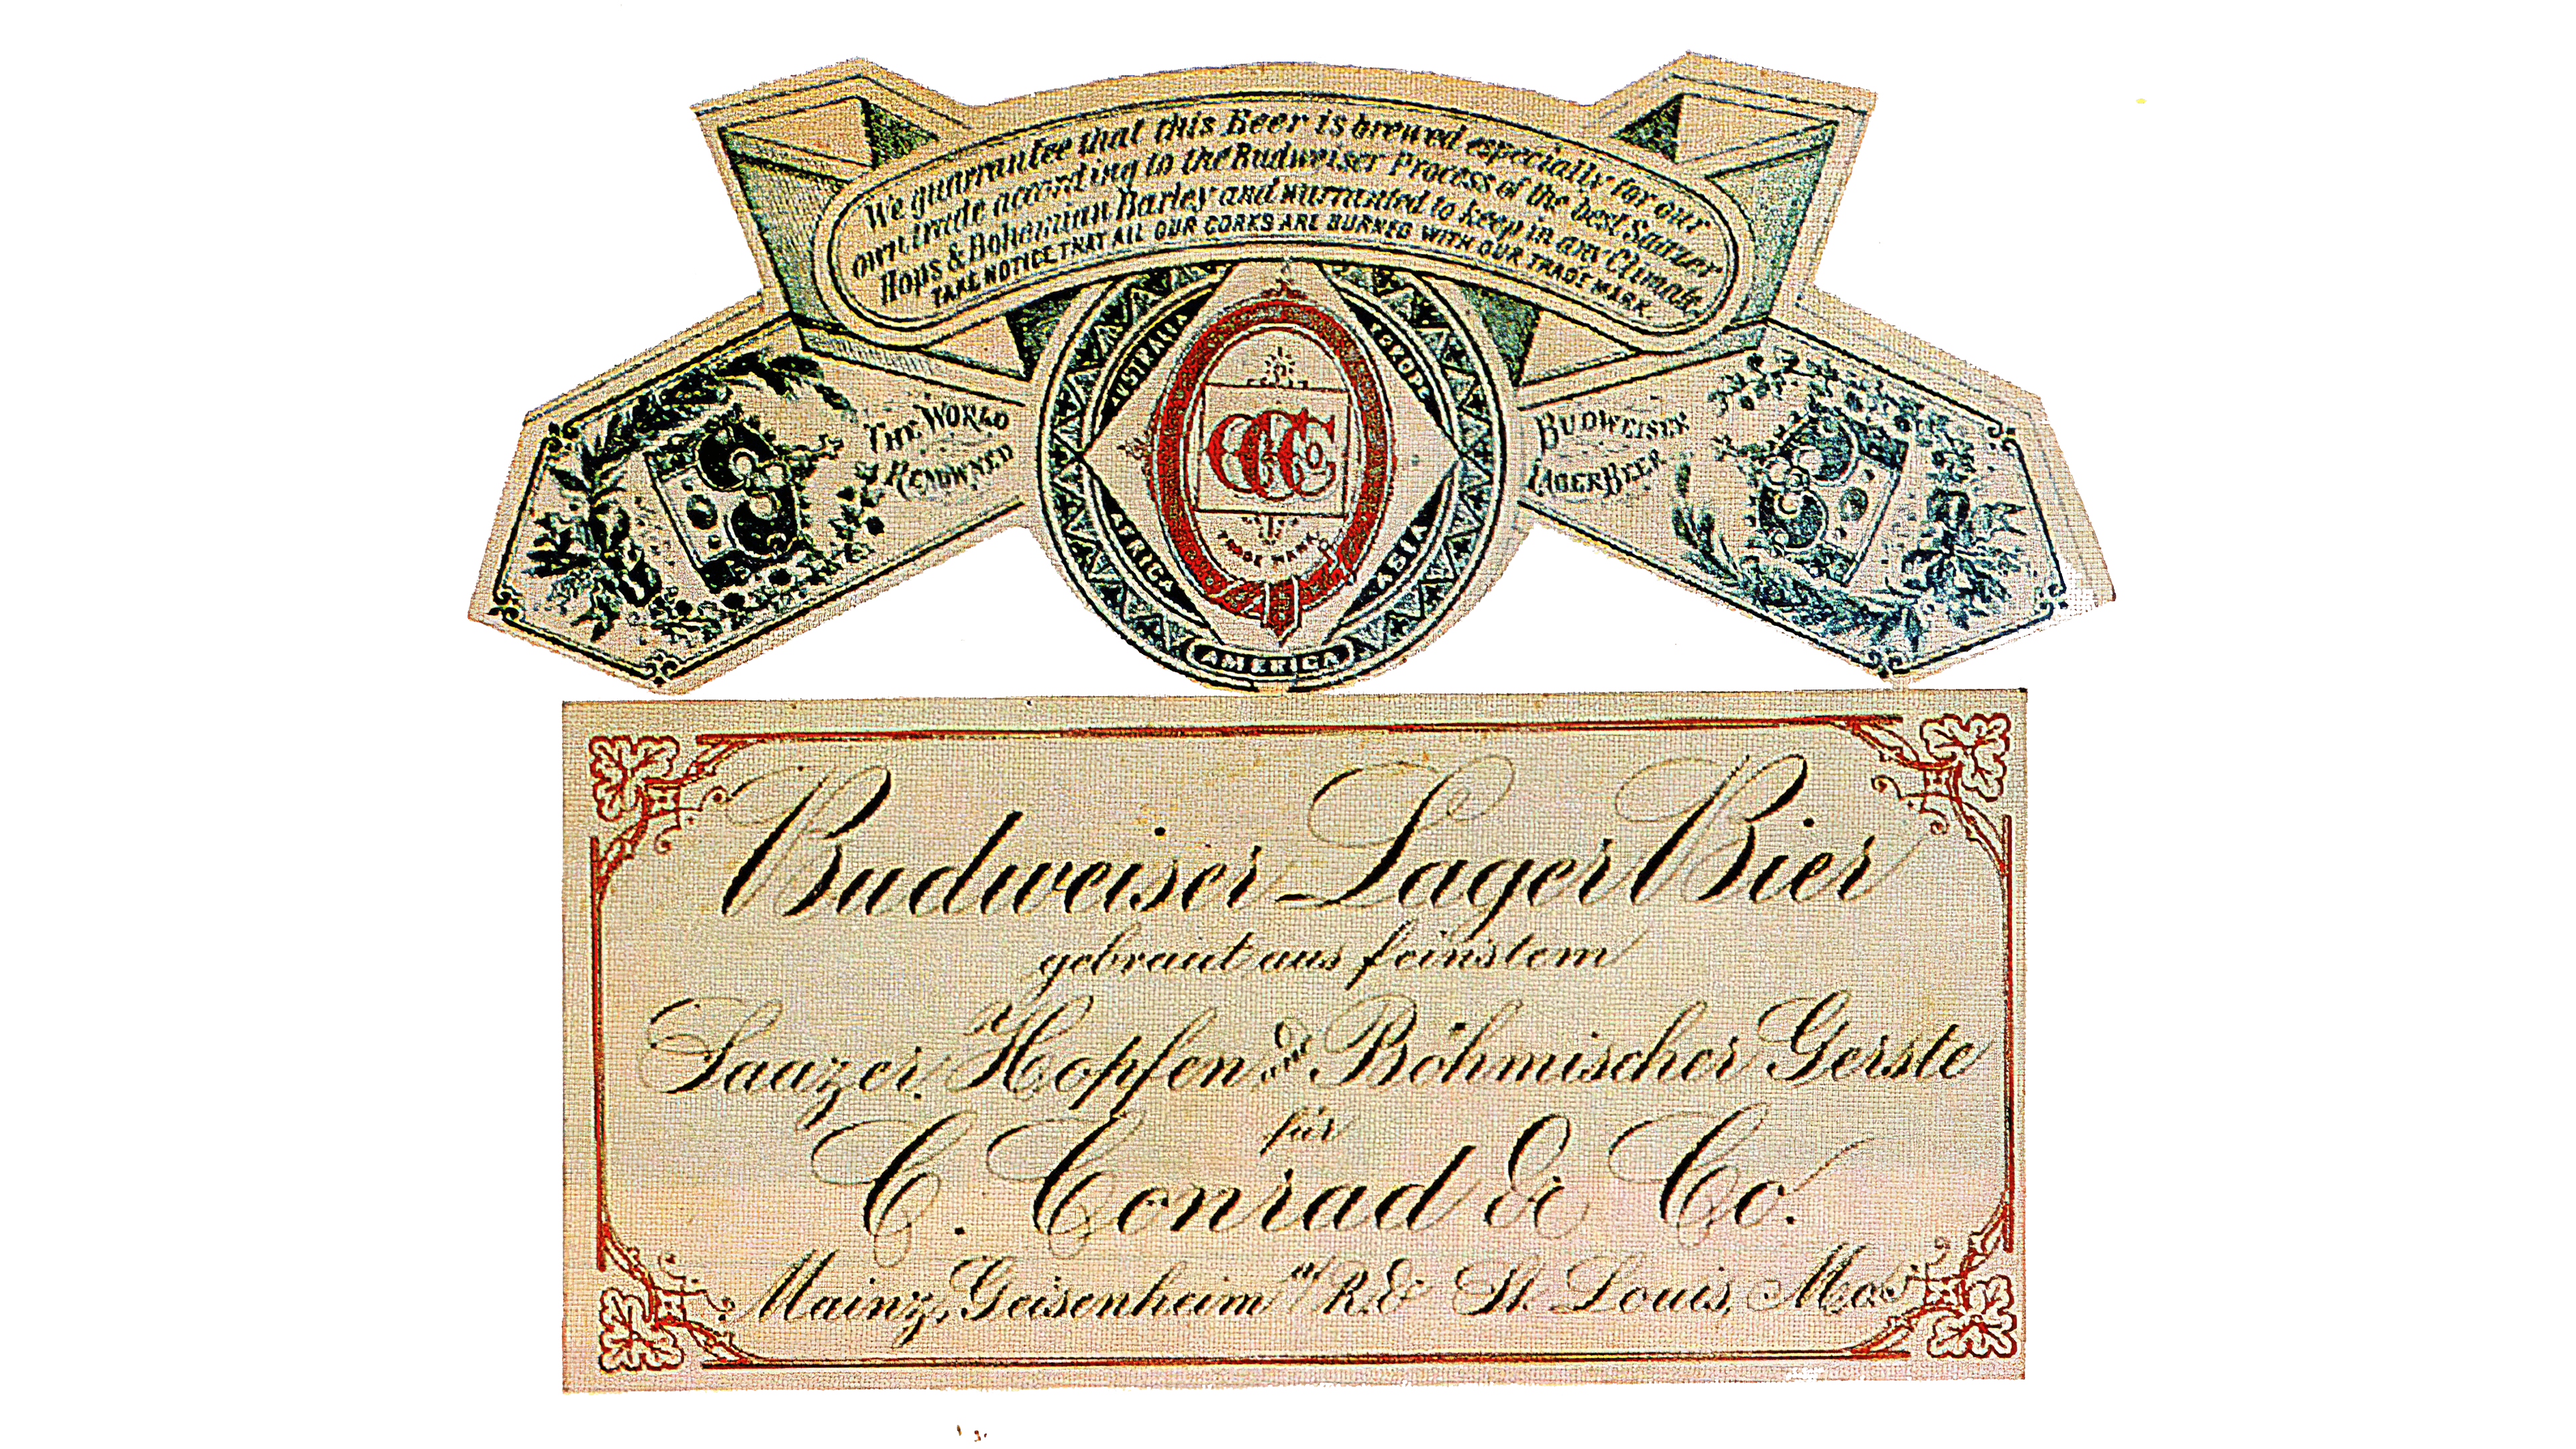 We guarantee that this Beer is brewed especially for our
own trade according to the Budweiser Process of the best Saazer
Hops & Bohemian Barley and warranted to keep in any Climate
TAKE NOTICE THAT ALL OUR CORKS ARE BURNED WITH OUR TRADE MARK
THE WORLD
RENOWNED
AUSTRALIA
EUROPE
CCCo
TRADE MARK
AFRICA
ASIA
AMERICA
BUDWEISER
LAGER BEER
Budweiser-Lager Bier
gebraut aus feinstem
Saazer Hopfen & Böhmischer Gerste
für
C. Conrad & Co.
Mainz, Geisenheim a/R. & St. Louis, Mo.